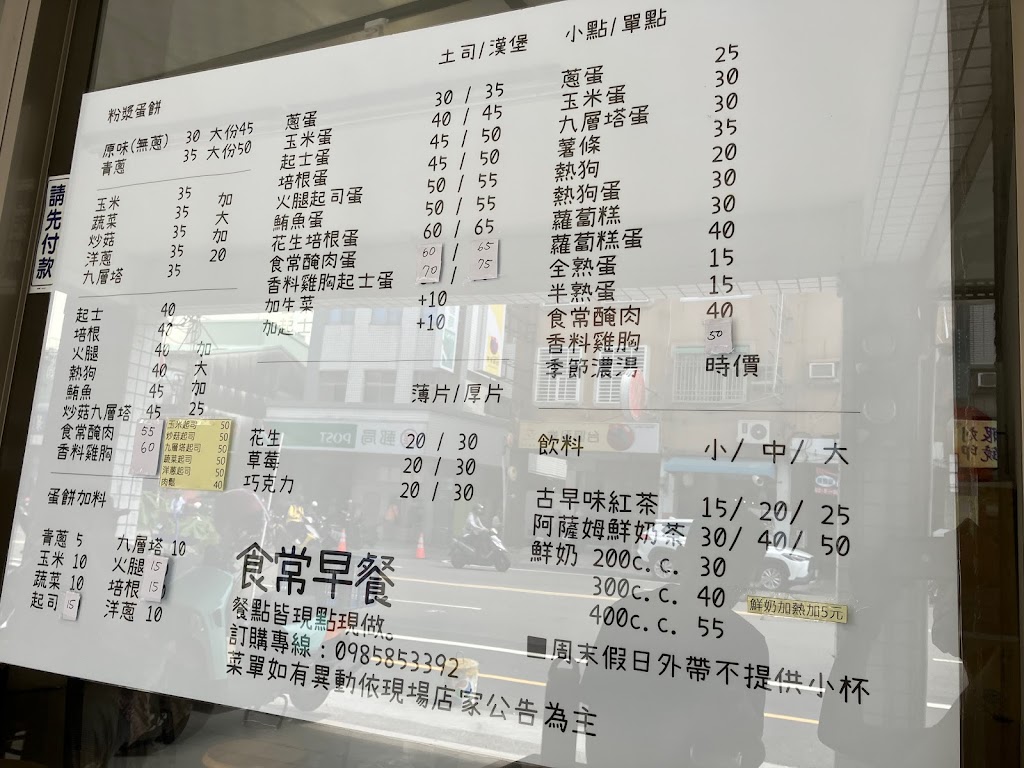 請先付款
粉漿蛋餅
原味(無蔥) 30 大份45
青蔥 35 大份50
玉米 35
蔬菜 35
炒菇 35
洋蔥 35
九層塔 35
加大加20
起士 40
培根 40
火腿 40
熱狗 40
鮪魚 45
炒菇九層塔 45
食常醃肉 55
香料雞胸 60
加大加25
玉米起司 50
炒菇起司 50
九層塔起司 50
蔬菜起司 50
洋蔥起司 50
肉鬆 40
蛋餅加料
青蔥 5 九層塔 10
玉米 10 火腿 15
蔬菜 10 培根 15
起司 15 洋蔥 10
土司/漢堡
蔥蛋 30 / 35
玉米蛋 40 / 45
起士蛋 45 / 50
培根蛋 45 / 50
火腿起司蛋 50 / 55
鮪魚蛋 50 / 55
花生培根蛋 60 / 65
食常醃肉蛋 60 / 65
香料雞胸起士蛋 70 / 75
加生菜 +10
加起 +10
薄片/厚片
花生 20 / 30
草莓 20 / 30
巧克力 20 / 30
食常早餐
餐點皆現點現做。
訂購專線：0985853392
菜單如有異動依現場店家公告為主
小點/單點
蔥蛋 25
玉米蛋 30
九層塔蛋 30
薯條 35
熱狗 20
熱狗蛋 30
蘿蔔糕 30
蘿蔔糕蛋 40
全熟蛋 15
半熟蛋 15
食常醃肉 40
香料雞胸 50
季節濃湯 時價
飲料 小/ 中/ 大
古早味紅茶 15/ 20/ 25
阿薩姆鮮奶茶 30/ 40/ 50
鮮奶 200c.c. 30
300c.c. 40
400c.c. 55
鮮奶加熱加5元
■周末假日外帶不提供小杯